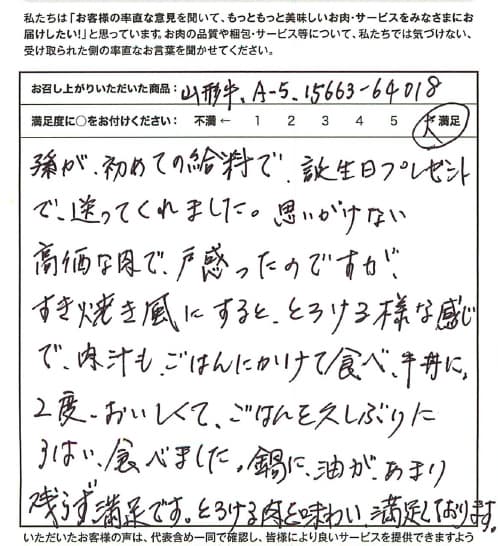 私たちは「お客様の率直な意見を聞いて、もっともっと美味しいお肉・サービスをみなさまにお
届けしたい!」と思っています。お肉の品質や梱包・サービス等について、私たちでは気づけない、
受け取られた側の率直なお言葉を聞かせてください。
お召し上がりいただいた商品: 山形牛、A-5、15663-64018
満足度に○をお付けください: 不満 ← 1 2 3 4 5 満足
孫が、初めての給料で、誕生日プレゼント
で、送ってくれました。思いがけない
高価な肉で、戸惑ったのですが、
すき焼き風にすると、とろける様な感じ
で、肉汁も、ごはんにかけて食べ、牛丼に、
2度-おいしくて、ごはんを久しぶりに
いっぱい、食べました。鍋に、油が、あまり
残らず満足です。とろける肉を味わい、満足しております。
いただいたお客様の声は、代表含め一同で確認し、皆様により良いサービスを提供できますよう